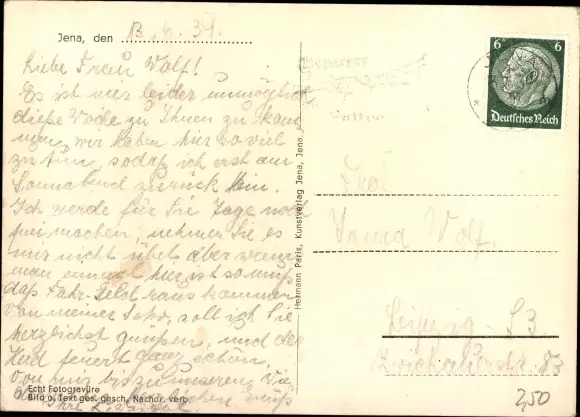 Jena, den 13. 6. 39.
Liebe Frau Wolf!
Es ist mir leider unmöglich
diese Woche zu Ihnen zu kom
men, wir haben hier so viel
zu tun, sodaß ich erst am
Sonnabend zurück bin.
Ich werde für Sie Tage noch
frei machen, nehmen Sie es
mir nicht übel, aber wenn
man einmal hier ist so muß
das Fahr-Geld raus kommen
Von meiner soll ich Sie
herzlichst grüßen, und der
Herd feuert ganz schön,
Von mir bis zu unserem Wie
Ihre
Echt Fotogravüre
Bild u. Text ges. gesch. Nachdr. verb.
Hermann Paris, Kunstverlag Jena, Jena.
6 6
Deutsches Reich
Frau
Wolf.
Leipzig - S3
Zwickauerstr.
2,50